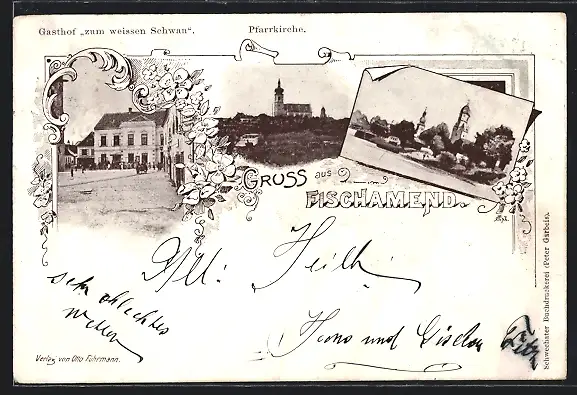 Gasthof „zum weissen Schwan".
Pfarrkirche.
GRUSS aus
FISCHAMEND.
Heil!
sehr schlechtes
Wetter
Hans und Gisela
Verlag von Otto Fuhrmann.
Schwechater Buchdruckerei (Peter Gärbeis).